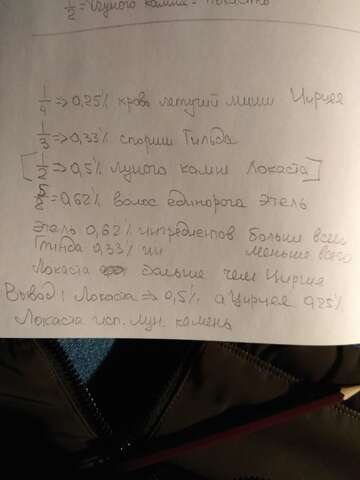 1/2 = Лунного камня - Локаста
1/4 => 0,25% кровь летучий миши Цирцея
1/3 => 0,33% спориш Гильда
[1/2 => 0,5% луного камни Локаста]
5/8 = 0,62% волос единорога Этель
Этель 0,62% интредиентов больше всех
Глинда 0,33% ии меньше всего
Локаста больше чем Цирция
Вывад: Локаста => 0,5% а Цирцея 0,25%
Локаста исп. лун. камень